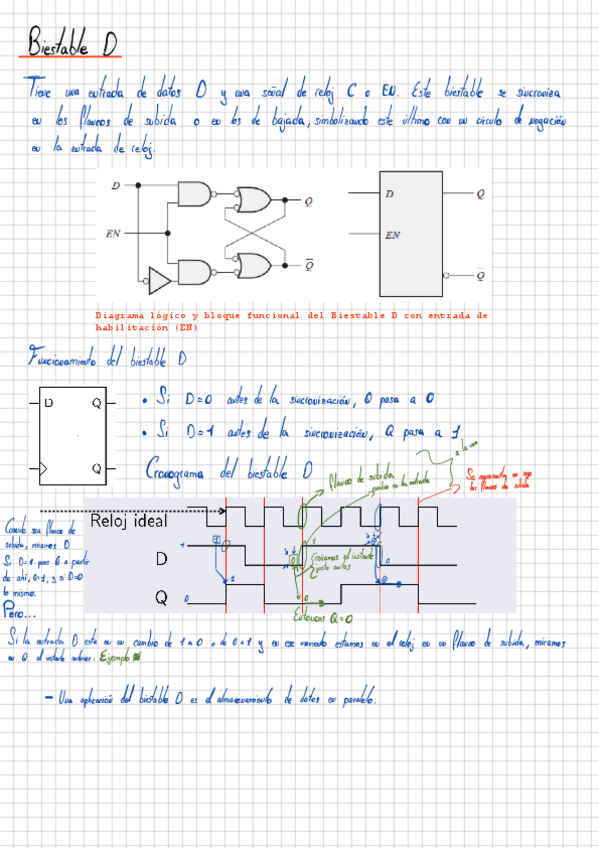 Biestable D
Tiene una entrada de datos D y una señal de reloj C o EN. Este biestable se sincroniza
en los flancos de subida o en los de bajada, simbolizando este último con un círculo de negación
en la entrada de reloj.
D
EN
Q
Q
D
EN
Q
Q
Diagrama lógico y bloque funcional del Biestable D con entrada de
habilitación (EN)
Funcionamiento del biestable D
D Q
Q
• Si D=0 antes de la sincronización, Q pasa a 0
• Si D=1 antes de la sincronización, Q pasa a 1
a la vez
Cronograma del biestable D
flanco de subida
cambio en la entrada
Se representa en rojo
los flancos de subida
Reloj ideal
D
Q
Cuando sea flanco de
subida, miramos D
Si D=1 pues Q a partir
de ahí, Q=1, y si D=0
lo mismo.
Pero...
miramos el instante
justo antes
Entonces Q=0
Si la entrada D esta en un cambio de 1 a 0 o de 0 a 1 y en ese momento estamos en el reloj en un flanco de subida, miramos
en D el instante anterior. Ejemplo
- Una aplicación del biestable D es el almacenamiento de datos en paralelo.